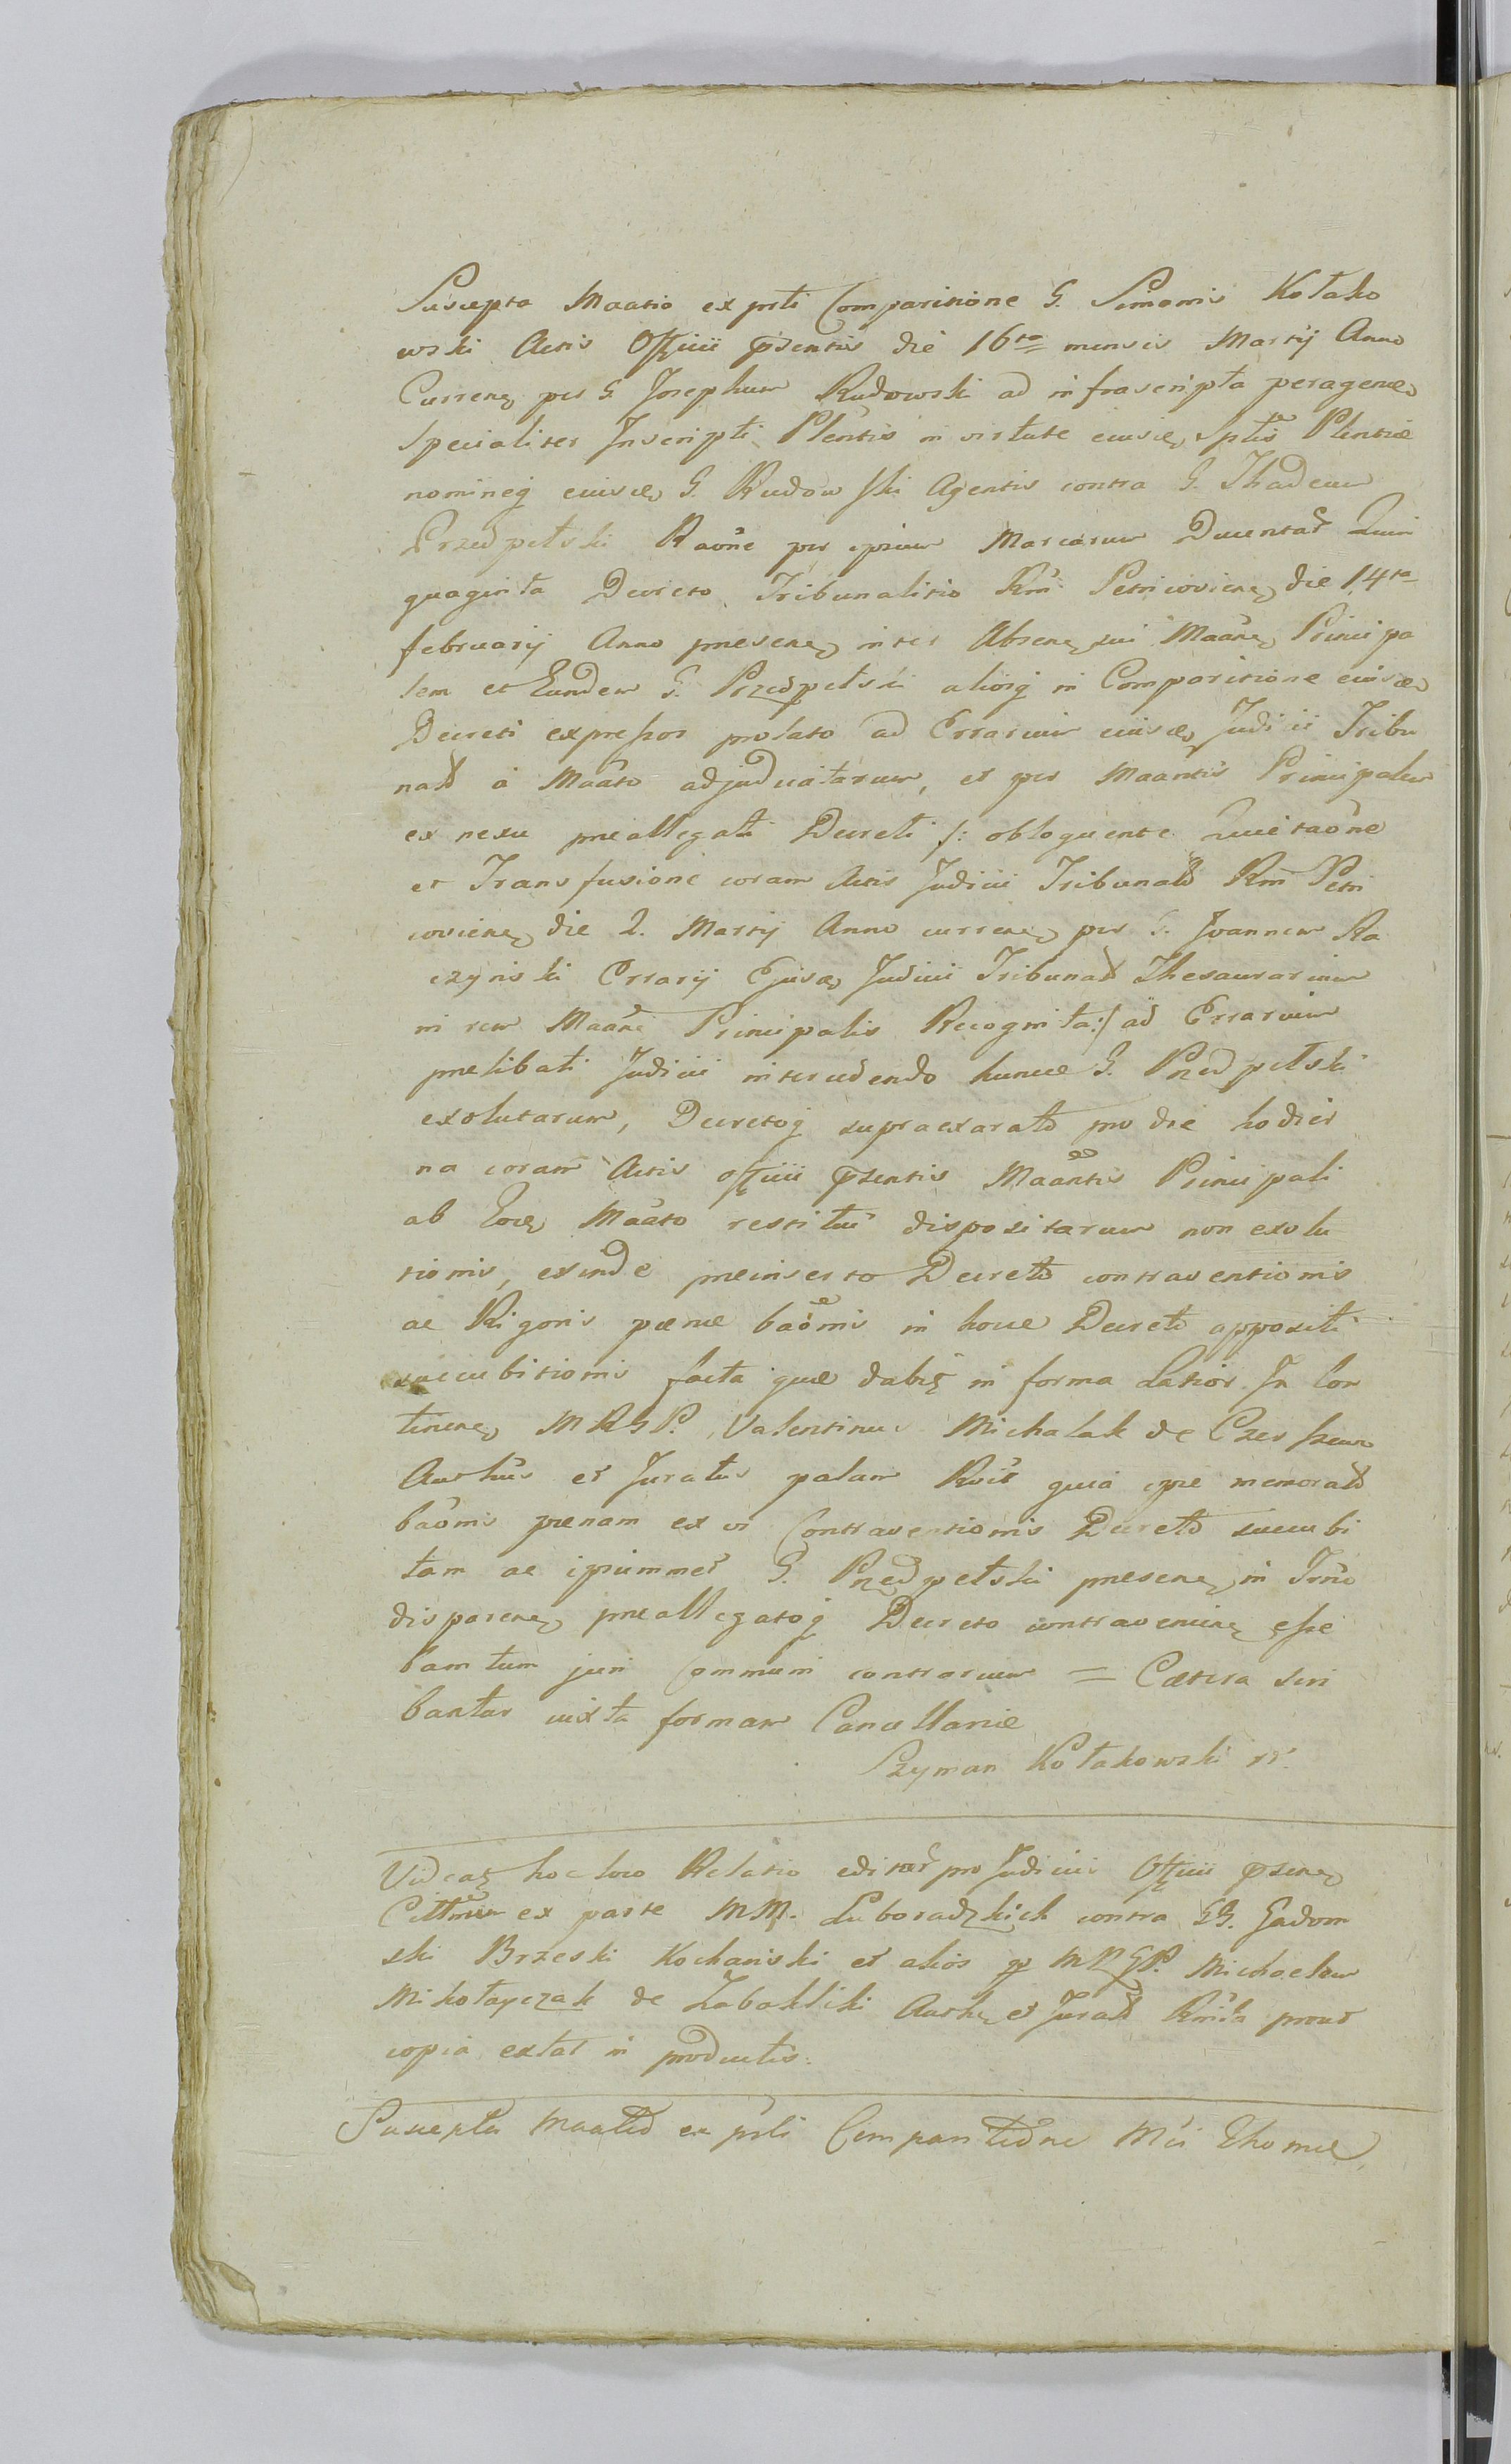 Suscepta Maatio ex prti Comparitione G. Simonis Kołako
wski Actis Offcii psentis die 16ta mensis Martij Anno
Curren per G. Josephum Rudowski ad infrascripta peragene
Specialiter Inscripti Plentis in virtute eiusd Splis Plentiæ
nomineq eiusd G. Rudowski Agentis contra G. Thadeum
Przedpełski Raone per ipsum Marcarum Ducentar Quin
quaginta Decreto Tribunalitio Rni Petricovien die 14ta
februarij Anno presene inter Absene sui Maane Principa
lem et Eundem G. Przedpełski aliosq in Comparitione eiusd
Decreti expressos prolato ad Erarium eiusd Judicii Tribu
nalis a Maato adjudicatarum, et per Maantis Principalem
ex nexu preallegati Decreti /: obloquente Quietaone
et Transfusione coram Actis Judicii Tribunalis Rni Petri
covien die 2. Martij Anno curren per G. Joannem Ra
czynski Erarij Ejusd Judicii Tribunalis Thesaurarium
in rem Maane Principalis Recognita :/ ad Erarium
prelibati Judicii intercedendo hunce G. Przedpełski
exolutarum, Decretoq supraexarato pro die hodier
na coram Actis offcii psentis Maantis Principali
ab Eod Maato restitui dispositarum non exolu
tionis, exinde preinserto Decreto contraventionis
ac Rigoris pænæ baonis in hocce Decreto appositi
succubitionis facta que dabis in forma Latior In Con
tinen MRGP. Valentinus Michalak de Czerszewo
Authus et Juratus palam Rvit quia ipse memorat
baonis pænam ex vi Contraventionis Decreto succubi
tam ac ipsummet G. Przedpełski presene in Trno
disparene preallegatoq Decreto contravenien esse
bamtum juri Communi contrarium = Cætera scri
bantur iuxta formam Cancellariæ
Szyman Kołakowski

Videas hoc loco Relatio editar pro Judiciis Offcii psene
ex parte MM. Luboradzkich contra GG. Gadom
ski Brzeski Kochański et alios p MRGP. Michaelem
Mikołayczak de Zabokliki Auth et Jurat prout
copia extat in productis.

Suscepta Maatio ex prti Comparitione Mci Thomæ